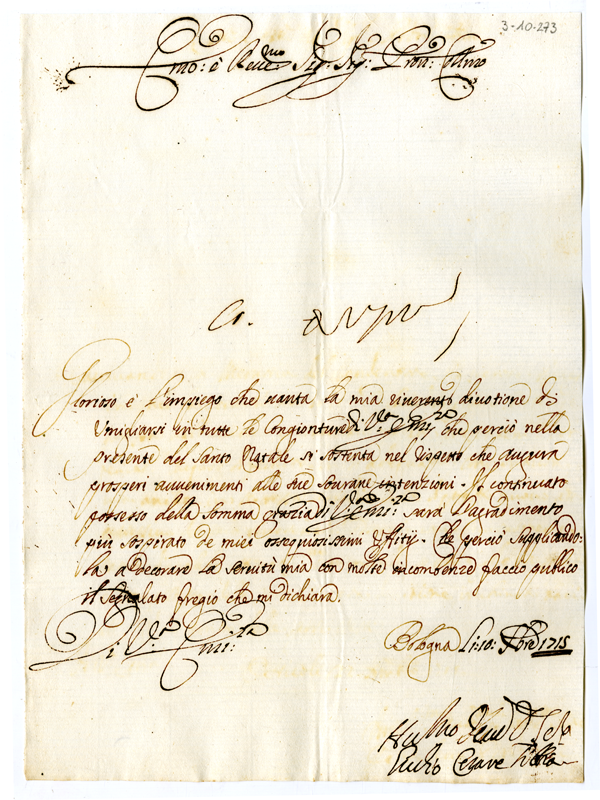 3-10-273
Emo: è Reue:mo Sig: Sig: Pron: Colmo
Glorioso è l'impiego che uanta la mia riuerente diuotione di
Umigliarsi in tutte le Congionture di V:ra Emi:za che perciò nella
presente del Santo Natale si ostenta nel rispetto che augura
prosperi auuenimenti alle sue sourane intenzioni. Il continuato
possesso della somma grazia di V:ra Emi:za sarà l'agradimento
più sospirato de miei ossequiosissimi Uffitij. Che perciò supplicando:
la a decorare la seruitù mia con molte incombenze faccio publico
il segnalato fregio che mi dichiara.
Di V:ra Emi:za
Bologna Li: 10: Xbre 1715
Cesare